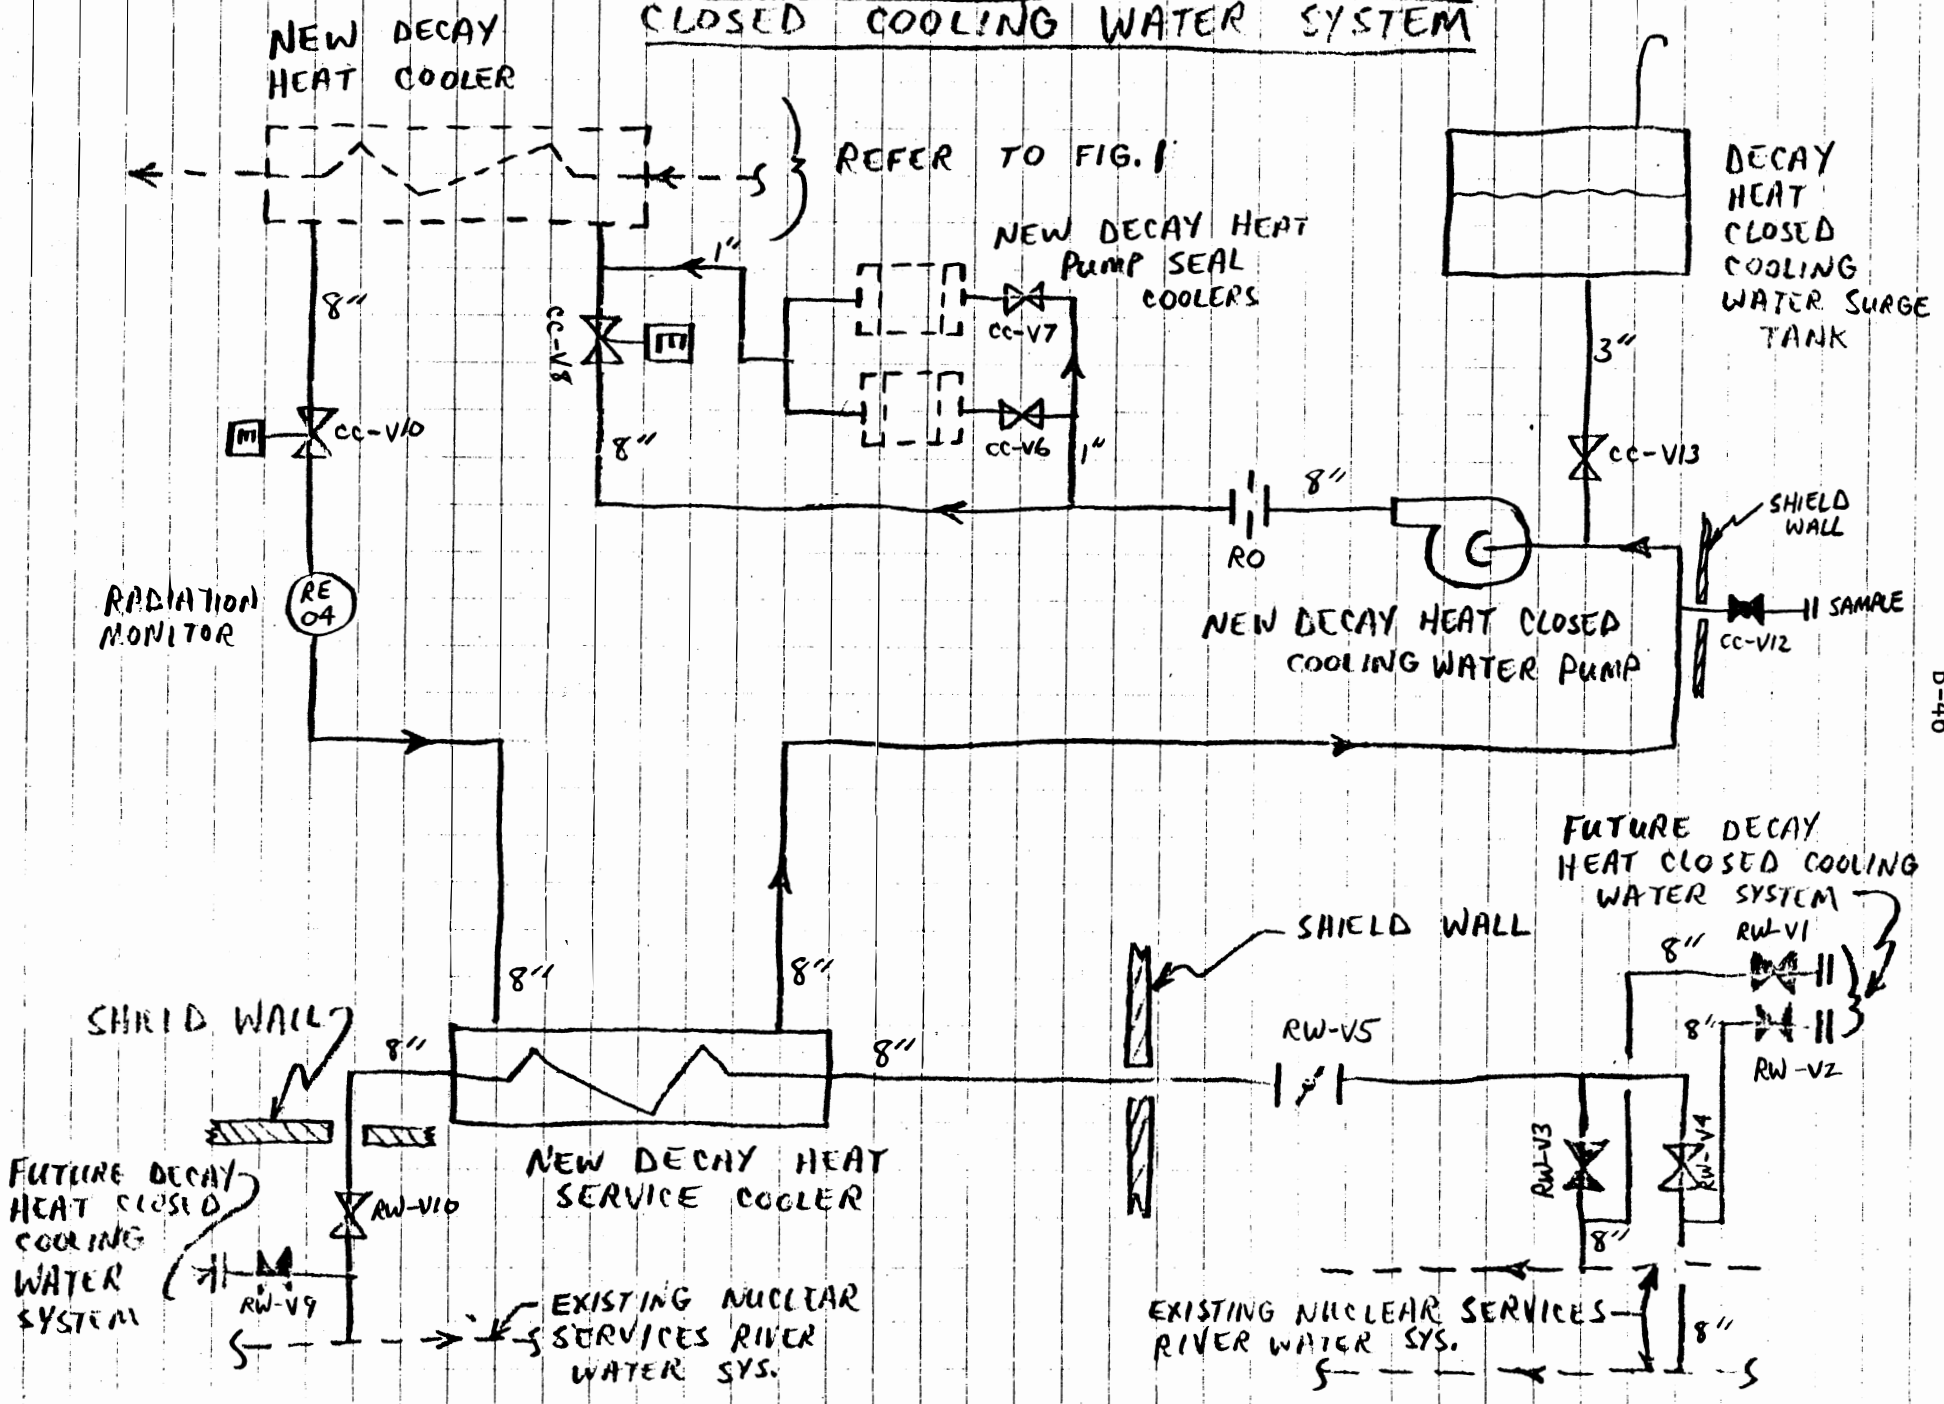 CLOSED COOLING WATER SYSTEM
NEW DECAY
HEAT COOLER
REFER TO FIG. 1
DECAY
HEAT
CLOSED
COOLING
WATER SURGE
TANK
NEW DECAY HEAT
PUMP SEAL
COOLERS
1"
8"
CC-V8
E
CC-V7
CC-V6
1"
3"
E
CC-V10
8"
8"
CC-V13
RO
SHIELD
WALL
SAMPLE
CC-V12
RADIATION
MONITOR
RE
04
NEW DECAY HEAT CLOSED
COOLING WATER PUMP
D-46
FUTURE DECAY
HEAT CLOSED COOLING
WATER SYSTEM
SHIELD WALL
8"
RW-V1
8"
8"
8"
RW-V2
SHIELD WALL
8"
8"
RW-V5
RW-V3
RW-V4
NEW DECAY HEAT
SERVICE COOLER
FUTURE DECAY
HEAT CLOSED
COOLING
WATER
SYSTEM
RW-V10
RW-V9
8"
EXISTING NUCLEAR
SERVICES RIVER
WATER SYS.
EXISTING NUCLEAR SERVICES
RIVER WATER SYS.
8"